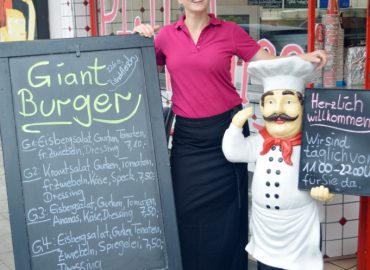 Giant
Burger
G1: Eisbergsalat, Gurken, Tomaten,
fr. Zwiebeln, Dressing 7,10.-
G2: Krautsalat, Gurken, Tomaten,
fr. Zwiebeln, Käse, Speck, 7,50,
Dressing
G3: Eisbergsalat, Gurken, Tomaten,
Ananas, Käse, Dressing 7,50,
G4: Eisbergsalat, Gurken, Tomaten,
Zwiebeln, Spiegelei, 7,50,
Dressing
Herzlich
willkommen
Wir sind
täglich von
11.00-22.00
für Sie da.